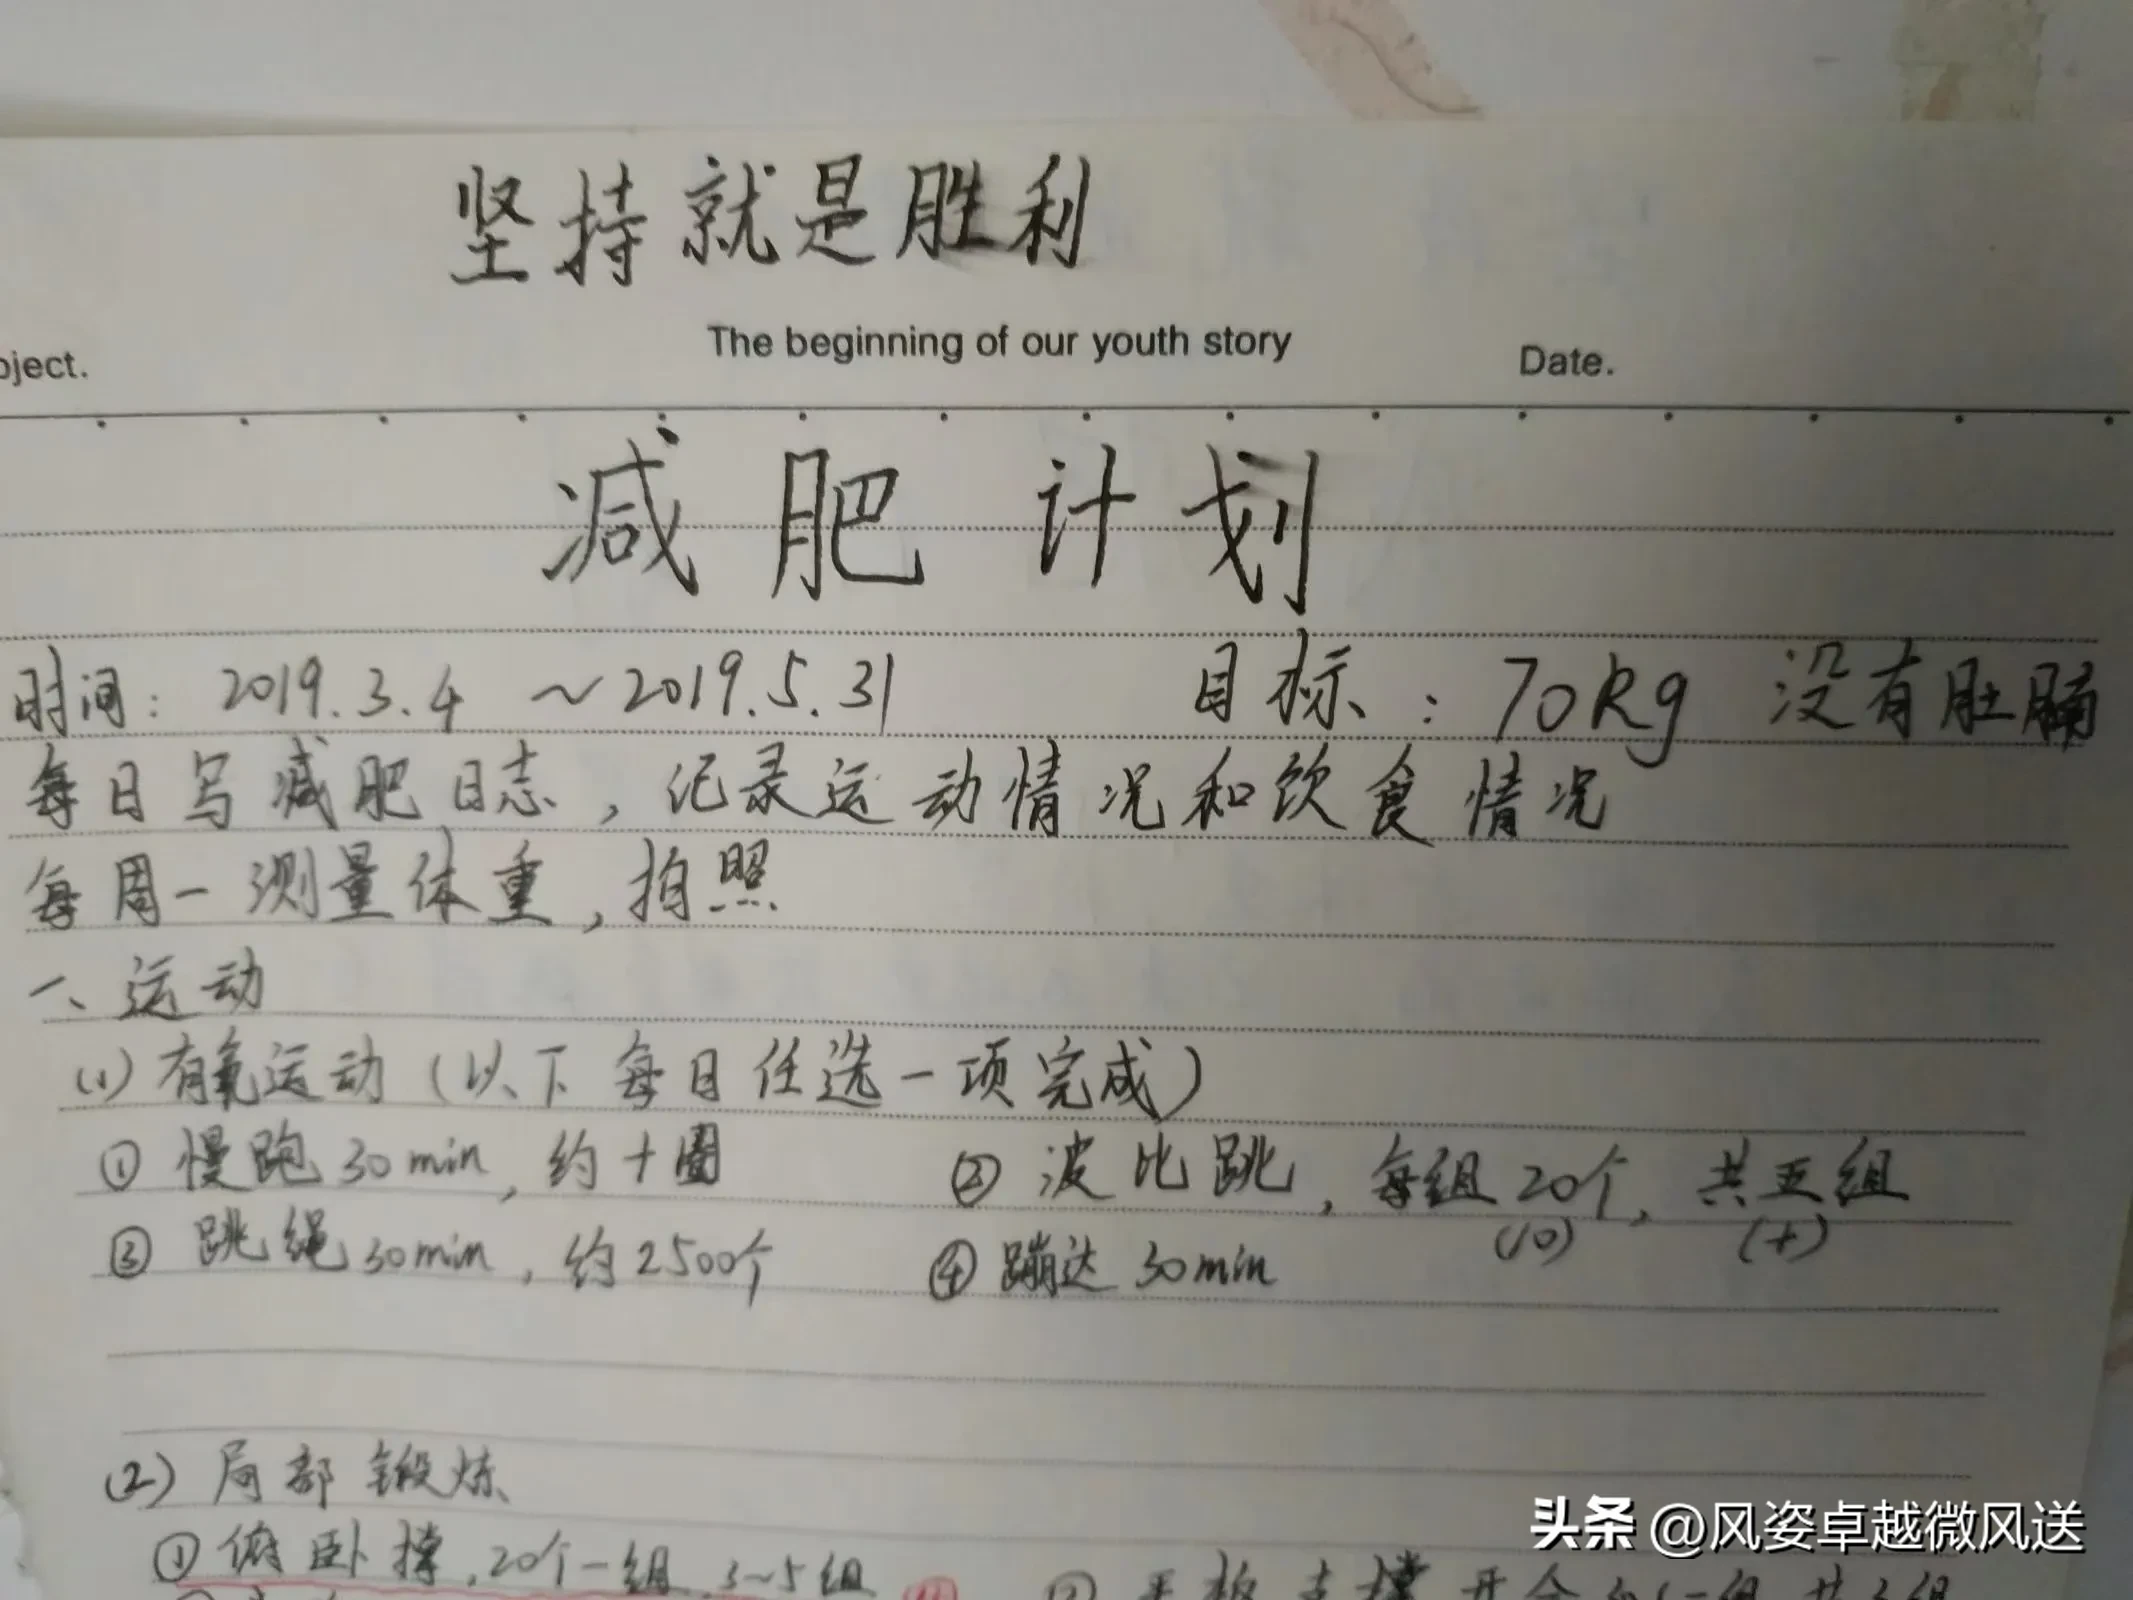 坚持就是胜利
The beginning of our youth story
bject.
Date.
减肥计划
时间：2019.3.4 ～2019.5.31 目标：70Kg 没有肚腩
每日写减肥日志，记录运动情况和饮食情况
每周一测量体重，拍照
一、运动
(1)有氧运动（以下每日任选一项完成）
① 慢跑30min，约十圈 ② 波比跳，每组20个，共五组
(10) (十)
③ 跳绳30min，约2500个 ④ 蹦达30min
(2) 局部锻炼
① 俯卧撑，20个一组，3~5组
头条 @风姿卓越微风送